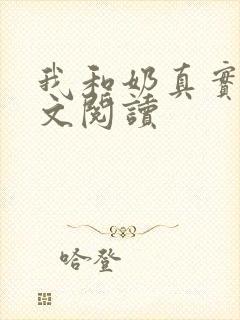 我和奶真實
文閱讀
哈登